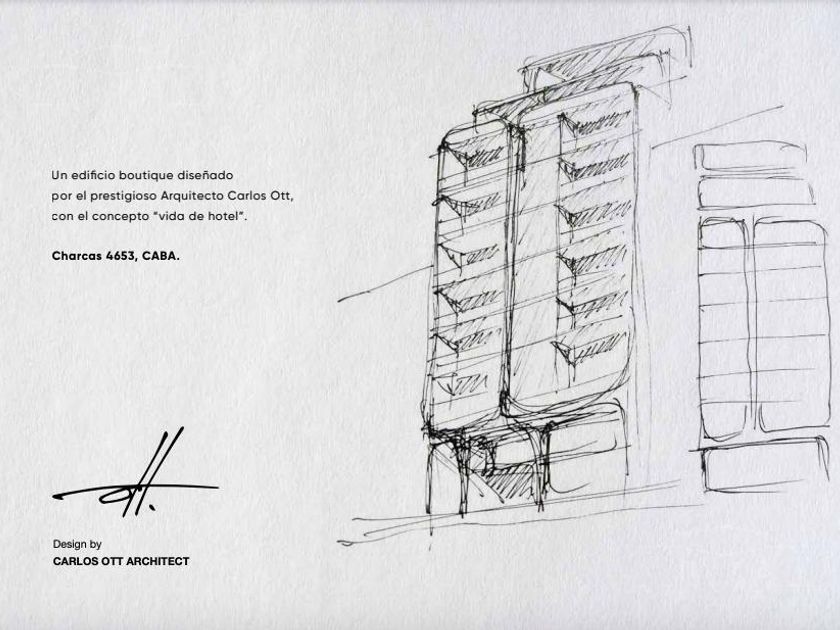 Un edificio boutique diseñado
por el prestigioso Arquitecto Carlos Ott,
con el concepto “vida de hotel”.
Charcas 4653, CABA.
Ott.
Design by
CARLOS OTT ARCHITECT